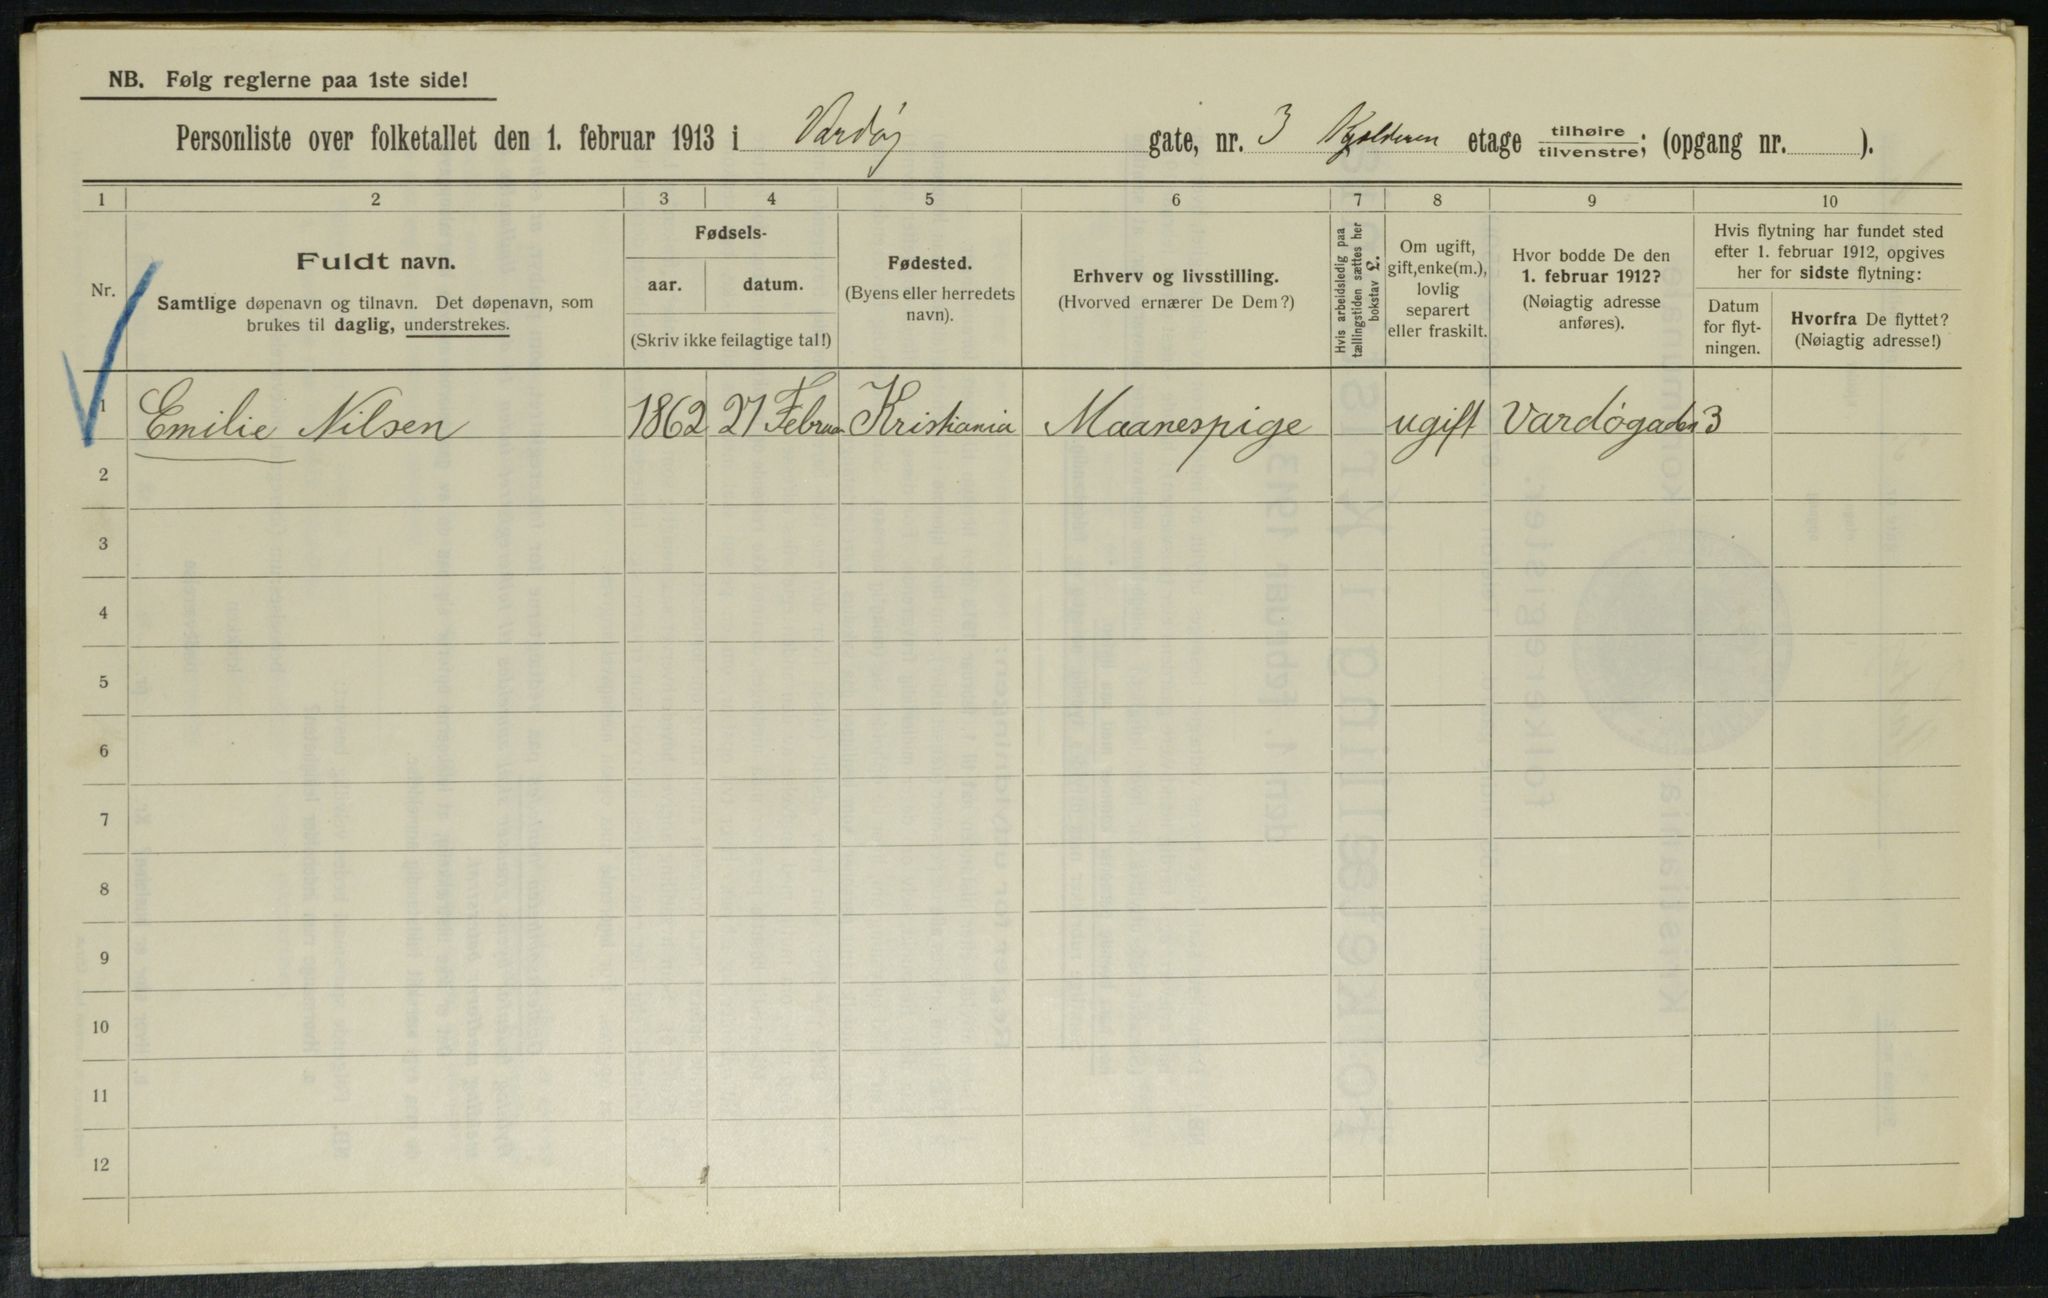 NB. Følg reglerne paa 1ste side!
Personliste over folketallet den 1. februar 1913 i Vardø gate, nr. 3 Kjælderen etage tilhøire / tilvenstre; (opgang nr. ).
1 2 3 4 5 6 7 8 9 10
Nr.
Fuldt navn.
Samtlige døpenavn og tilnavn. Det døpenavn, som
brukes til daglig, understrekes.
Fødsels-
aar. datum.
(Skriv ikke feilagtige tal!)
Fødested.
(Byens eller herredets
navn).
Erhverv og livsstilling.
(Hvorved ernærer De Dem?)
Hvis arbeidsledig paa
tællingstiden sættes her
bokstav L.
Om ugift,
gift, enke(m.),
lovlig
separert
eller fraskilt.
Hvor bodde De den
1. februar 1912?
(Nøiagtig adresse
anføres).
Hvis flytning har fundet sted
efter 1. februar 1912, opgives
her for sidste flytning:
Datum
for flyt-
ningen.
Hvorfra De flyttet?
(Nøiagtig adresse!)
1 Emilie Nilsen 1862 27 Februar Kristiania Maanespige ugift Vardøgaden 3
2
3
4
5
6
7
8
9
10
11
12